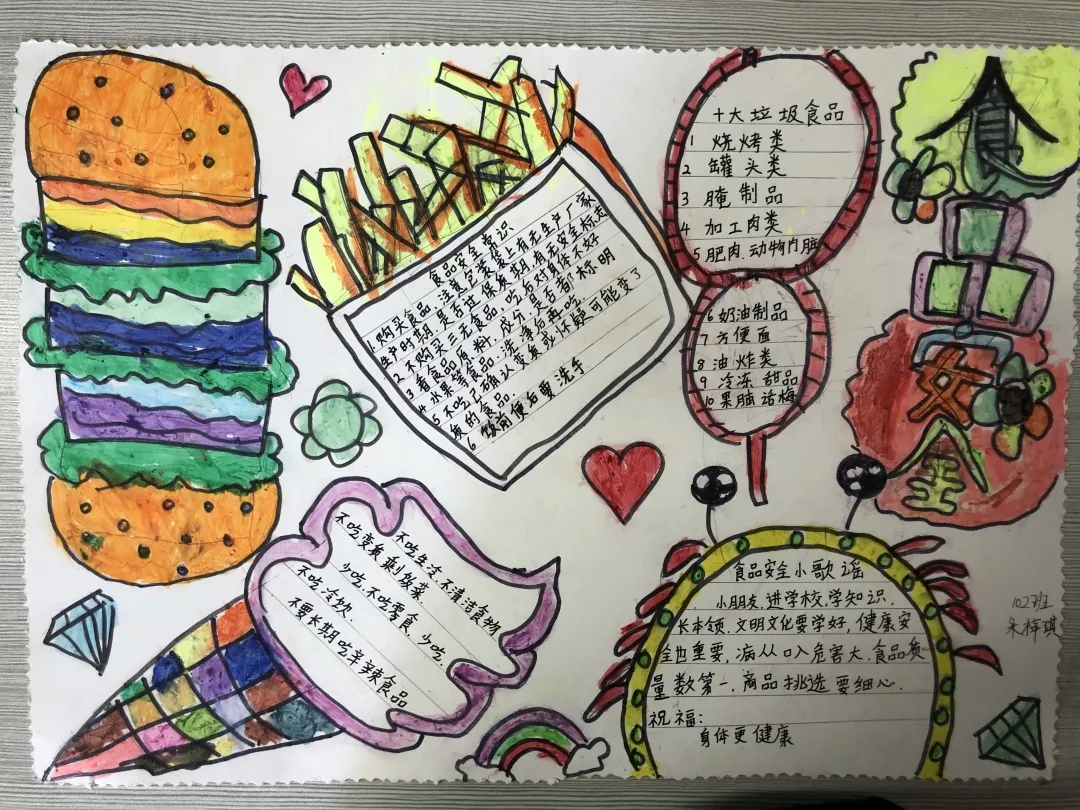 食品安全
食品安全常识
1.购买食品,注意包装袋上有无生产厂家
生产时期,是否过保质期,有无安全标志
2 不购买三无食品,吃后对身体不好
3 看食品原料,成分,是否都标明
4 水果等食品,洗净后再吃
5 不吃已确认变质或怀疑可能变了
质的食品
6 饭前便后要洗手
十大垃圾食品
1 烧烤类
2 罐头类
3 腌制品
4 加工肉类
5 肥肉.动物内脏
6 奶油制品
7 方便面
8 油炸类
9 冷冻甜品
10 果脯话梅
不吃生冷,不清洁食物
不吃变质剩饭菜.
少吃,不吃零食,少吃.
不吃冷饮.
不要长期吃辛辣食品
食品安全小歌谣
小朋友.进学校,学知识.
长本领.文明文化要学好,健康安
全也重要,病从口入危害大.食品质
量数第一.商品挑选要细心.
祝福:
身体更健康
102班
朱梓琪